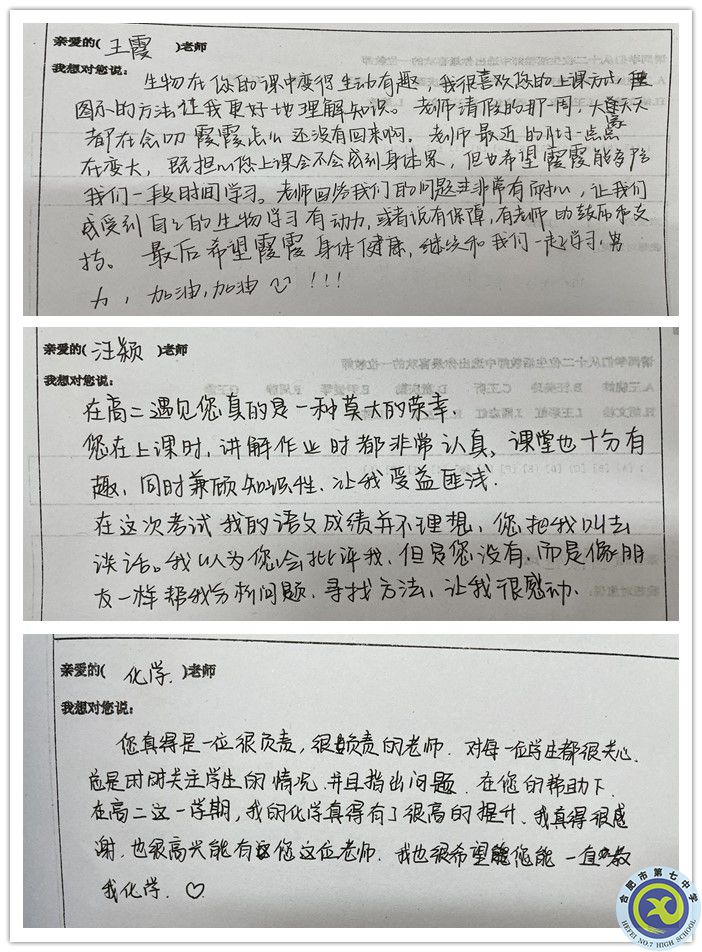 亲爱的( 王霞 )老师
我想对您说:
生物在你的课中变得生动有趣，我很喜欢您的上课方式，
图示的方法让我更好地理解知识。老师请假的那一周，大家天天
都在念叨霞霞怎么还没有回来啊。老师最近的肚子一点点
在变大，既担心您上课会不会感到身体累，但也希望霞霞能多陪
我们一段时间学习。老师回答我们的问题非常有耐心，让我们
感受到自己的生物学习有动力，或者说有保障，有老师的鼓励和支
持。最后希望霞霞身体健康，继续和我们一起学习，努
力，加油，加油!!!
亲爱的( 汪颖 )老师
我想对您说:
在高二遇见您真的是一种莫大的荣幸.
您在上课时，讲解作业时都非常认真。课堂也十分有
趣，同时兼顾知识性，让我受益匪浅.
在这次考试我的语文成绩并不理想，您把我叫去
谈话。我以为您会批评我，但是您没有，而是像朋
友一样帮我分析问题，寻找方法，让我很感动.
亲爱的( 化学. )老师
我想对您说:
您真得是一位很负责，很负责的老师. 对每一位学生都很关心.
总是时时关注学生的情况，并且指出问题. 在您的帮助下.
在高二这一学期，我的化学真得有了很高的提升. 我真得很感
谢，也很高兴能有您这位老师. 我也很希望您能一直教
我化学. ♡
合肥市第七中学
HEFEI NO.7 HIGH SCHOOL